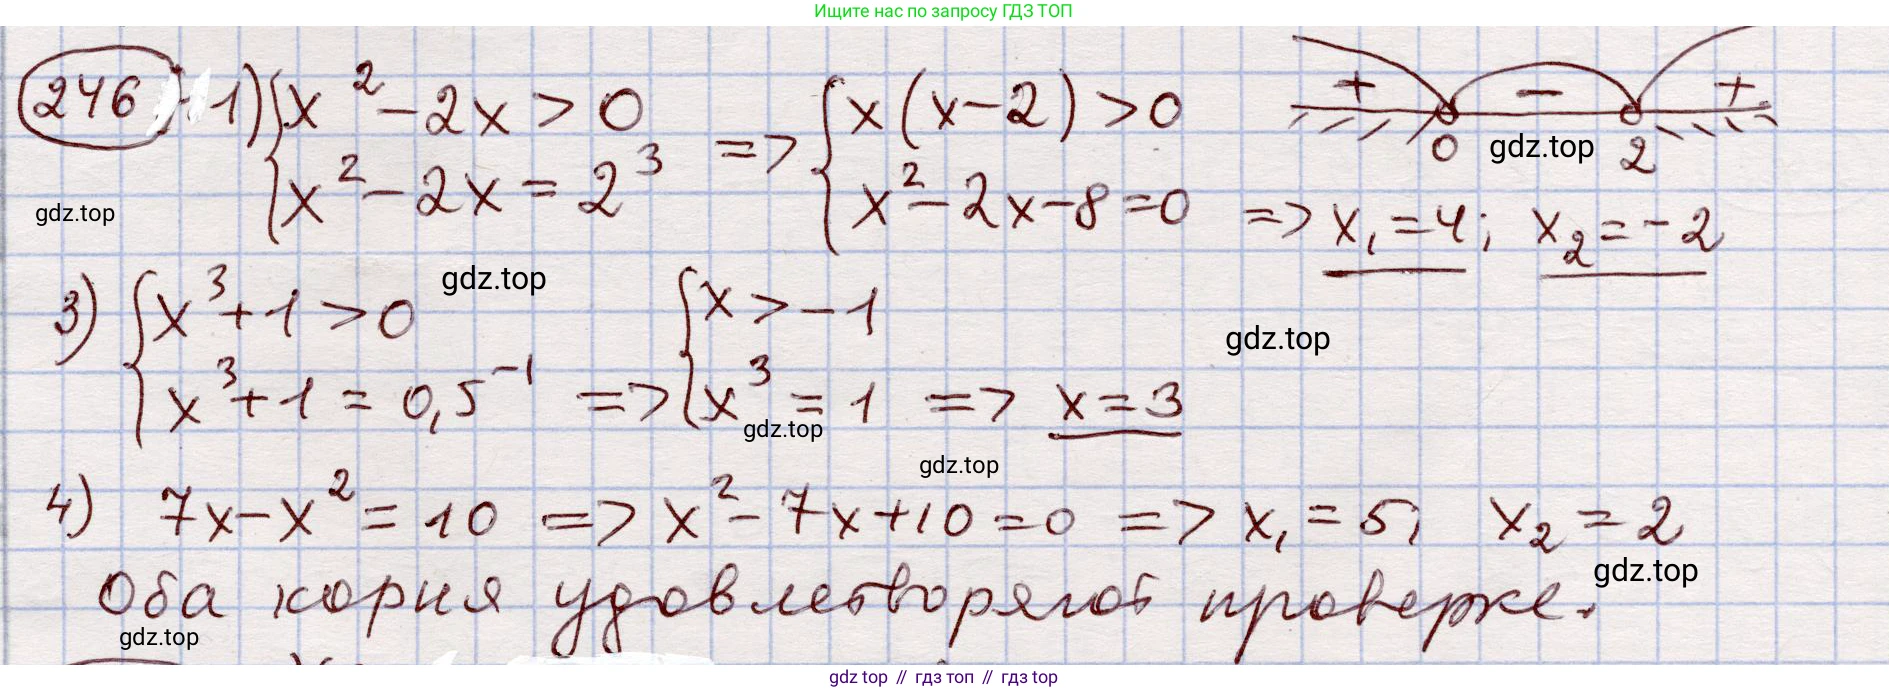 Ищите нас по запросу ГДЗ ТОП
246 1) { x² - 2x > 0 => { x(x-2) > 0 + - +
{ x² - 2x = 2³ { x² - 2x - 8 = 0 => x₁ = 4; x₂ = -2 0 gdz.top 2
gdz.top
gdz.top
3) { x³ + 1 > 0 { x > -1
gdz.top
{ x³ + 1 = 0,5⁻¹ => { x³ = 1 => x = 3
gdz.top
gdz.top
4) 7x - x² = 10 => x² - 7x + 10 = 0 => x₁ = 5; x₂ = 2
gdz.top
Оба корня удовлетворяют проверке.
gdz.top
gdz top // гдз топ // гдз top